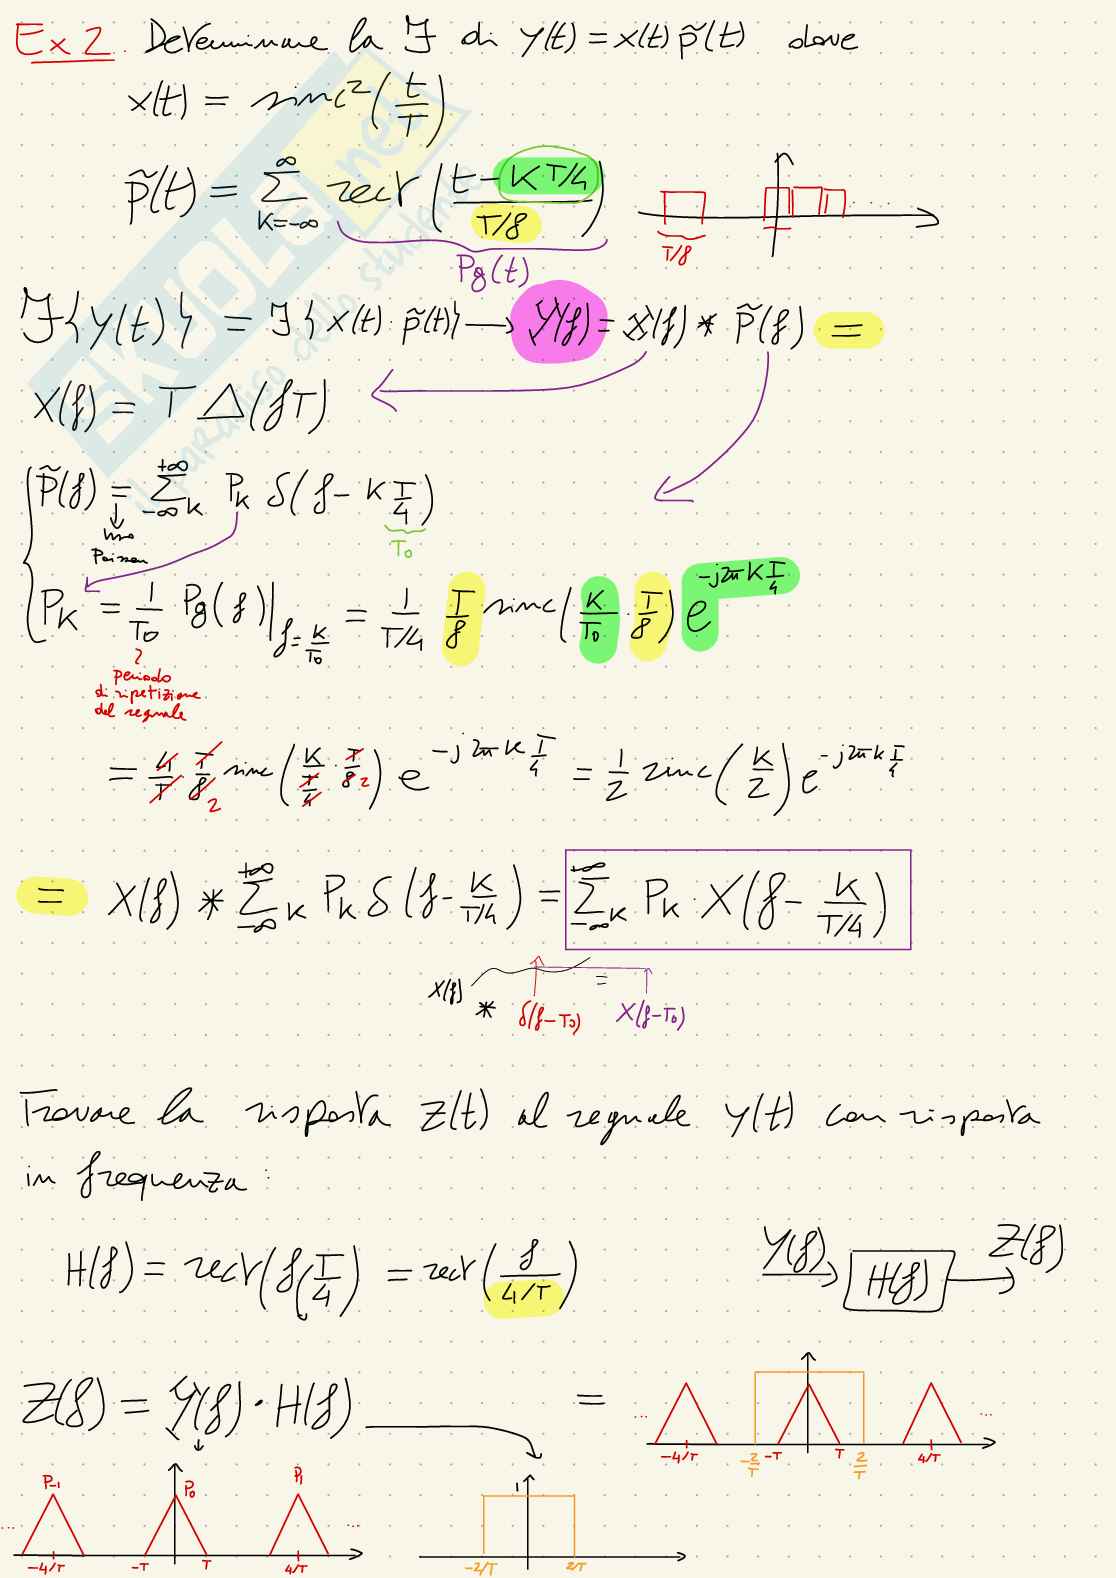 Ex 2. Determinare la ℱ di y(t) = x(t) p̃(t) dove
x(t) = sinc²(t/T)
p̃(t) = Σ_{K=-∞}^{∞} rect((t - KT/4)/(T/8))
T/8
Pg(t)
ℱ{y(t)} = ℱ{x(t) · p̃(t)} → Y(f) = X(f) * P̃(f) =
X(f) = T Δ(fT)
P̃(f) = Σ_{-∞}^{+∞}_K P_K δ(f - K T/4)
T₀
uso
Poisson
P_K = 1/T₀ Pg(f)|_{f=K/T₀} = 1/(T/4) T/8 sinc(K/T₀ · T/8) e^{-j2πK T/4}
periodo
di ripetizione
del segnale
= 4/T · T/8 sinc(K/(T/4) · T/8) e^{-j2πK T/4} = 1/2 sinc(K/2) e^{-j2πK T/4}
2 2
= X(f) * Σ_{-∞}^{+∞}_K P_K δ(f - K/(T/4)) = Σ_{-∞}^{+∞}_K P_K · X(f - K/(T/4))
X(f) * δ(f-T₀) = X(f-T₀)
Trovare la risposta Z(t) al segnale y(t) con risposta
in frequenza:
H(f) = rect(f T/4) = rect(f/(4/T))
Y(f) → H(f) → Z(f)
Z(f) = Y(f) · H(f) =
... -4/T -2/T -T T 2/T 4/T ...
P₋₁ P₀ P₁
... -4/T -T T 4/T ...
1
-2/T 2/T
SKUOLA.net
il paradiso dello studente